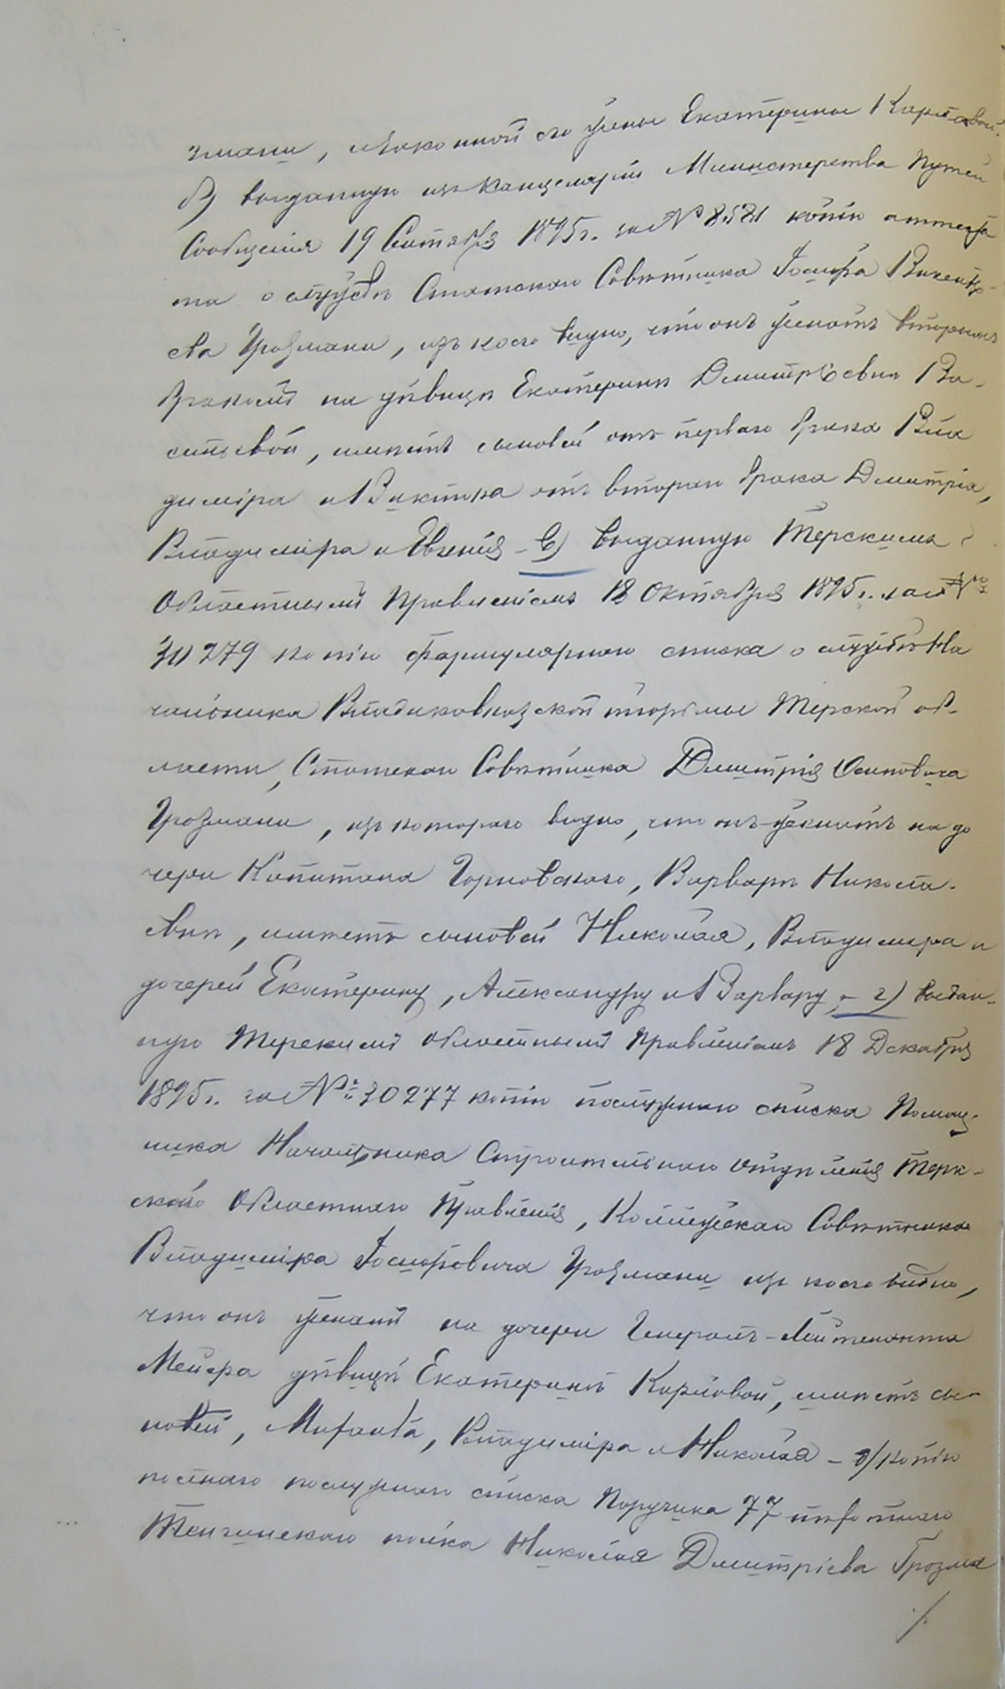 змани, и законной его жены Екатерины Карловой.
б) выданную изъ Канцеляріи Министерства Путей
Сообщенія 19 Сентября 1895 г. за № 8581 копію аттеста
та о службѣ Статскаго Совѣтника Іосифа Викентье
ва Грозмани, изъ коего видно, что онъ женатъ вторымъ
бракомъ на дѣвицѣ Екатеринѣ Дмитріевнѣ Ва-
сильевой, имѣетъ сыновей отъ перваго брака Вла
диміра и Виктора отъ втораго брака Дмитрія,
Владиміра и Евгенія – в) выданную Терскимъ
Областнымъ Правленіемъ 18 Октября 1895 г. за №
30279 копію формулярнаго списка о службѣ На
чальника Владикавказской тюрьмы Терской об-
ласти, Статскаго Совѣтника Дмитрія Осиповича
Грозмани, изъ котораго видно, что онъ женатъ на до
чери Капитана Горновского, Варварѣ Никола-
евнѣ, имѣетъ сыновей Николая, Владимира и
дочерей Екатерину, Александру и Варвару, – г) выдан-
ную Терскимъ Областнымъ Правленіемъ 18 Декабря
1895 г. за № 30277 копію послужнаго списка Помощ-
ника Начальника Строительнаго Отдѣленія Терс-
скаго Областнаго Правленія, Коллежскаго Совѣтника
Владиміра Іосифовича Грозмани изъ коего видно,
что онъ женатъ на дочери Генералъ-Лейтенанта
Мейера дѣвицѣ Екатеринѣ Карловой, имѣетъ сы-
новей, Владиміра и Николая – д) копію
полнаго послужнаго списка Поручика 77 пѣхотнаго
Тенгинскаго полка Николая Дмитріева Грозма